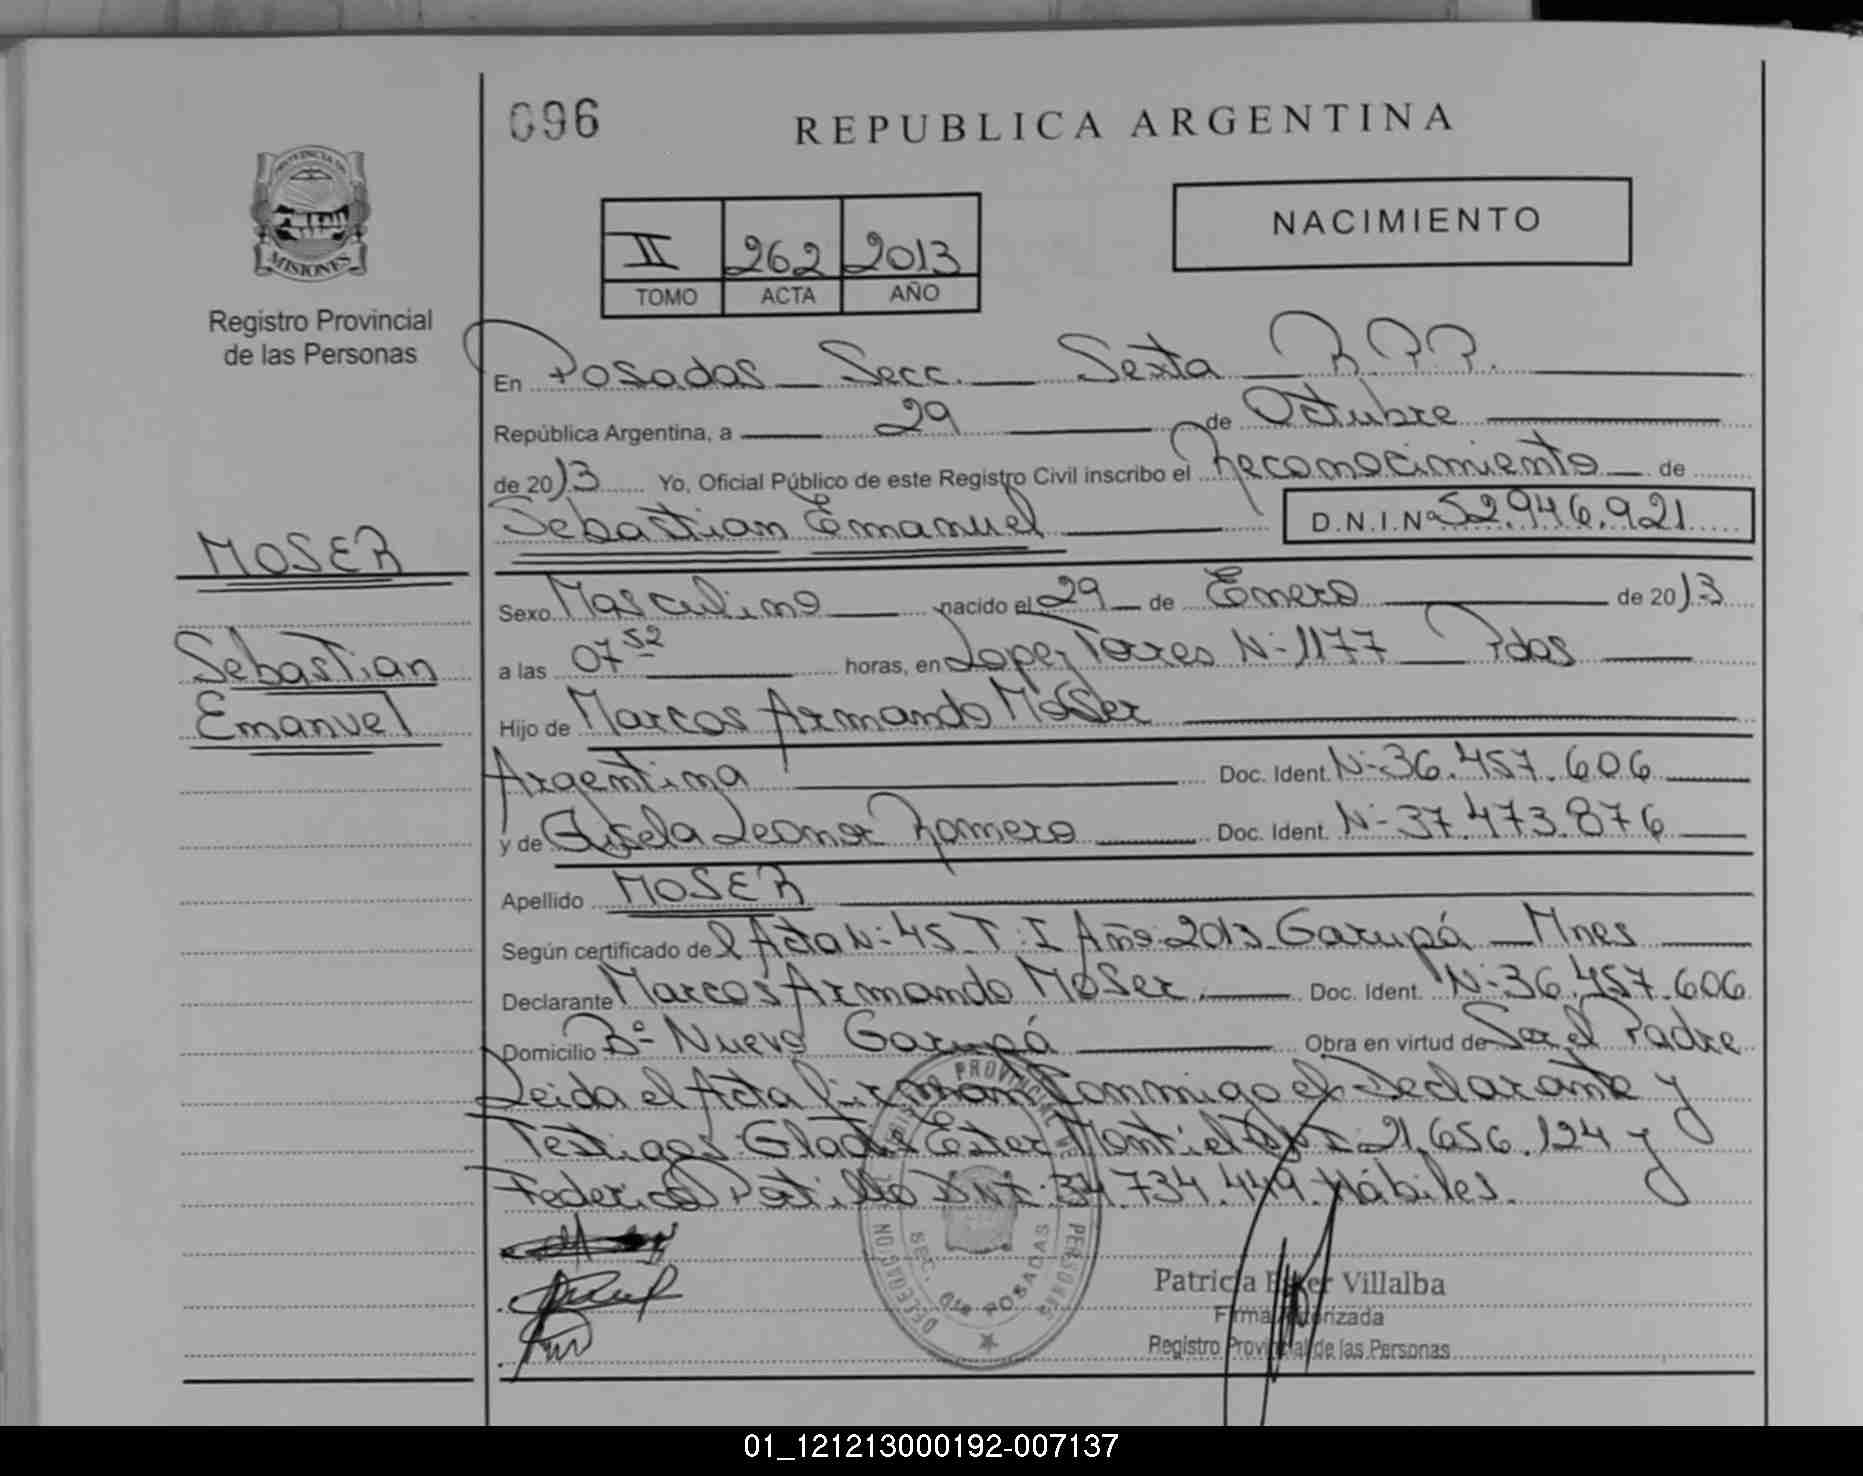 096
REPUBLICA ARGENTINA
PROVINCIA DE
MISIONES
Registro Provincial
de las Personas
II 262 2013
TOMO ACTA AÑO
NACIMIENTO
En Posadas Secc. Sexta R.P.P.
República Argentina, a 29 de Octubre
de 2013 Yo, Oficial Público de este Registro Civil inscribo el Reconocimiento de
Sebastian Emanuel D.N.I.Nº 52.946.921
MOSER
Sebastian
Emanuel
Sexo Masculino nacido el 29 de Enero de 2013
a las 07 52 horas, en Lopez Torres N-1177 Pdas
Hijo de Marcos Armando Moser
Argentina Doc. Ident. N-36.457.606
y de Gisela Leonor Romero Doc. Ident. N-37.473.876
Apellido MOSER
Según certificado del Acta N-45 T.I Año 2013 Garupá Mnes
Declarante Marcos Armando Moser Doc. Ident. N-36.457.606
Domicilio Bº Nuevo Garupá Obra en virtud de Ser el Padre
Leida el Acta firman Conmigo el Declarante y
Testigos: Gladis Ester Montiel D.N.I. 21.656.124 y
Federico DNI: 34.734.449. Hábiles.
SEC. 6ta POSADAS
Patricia Ester Villalba
Firma Autorizada
Registro Provincial de las Personas
01_121213000192-007137